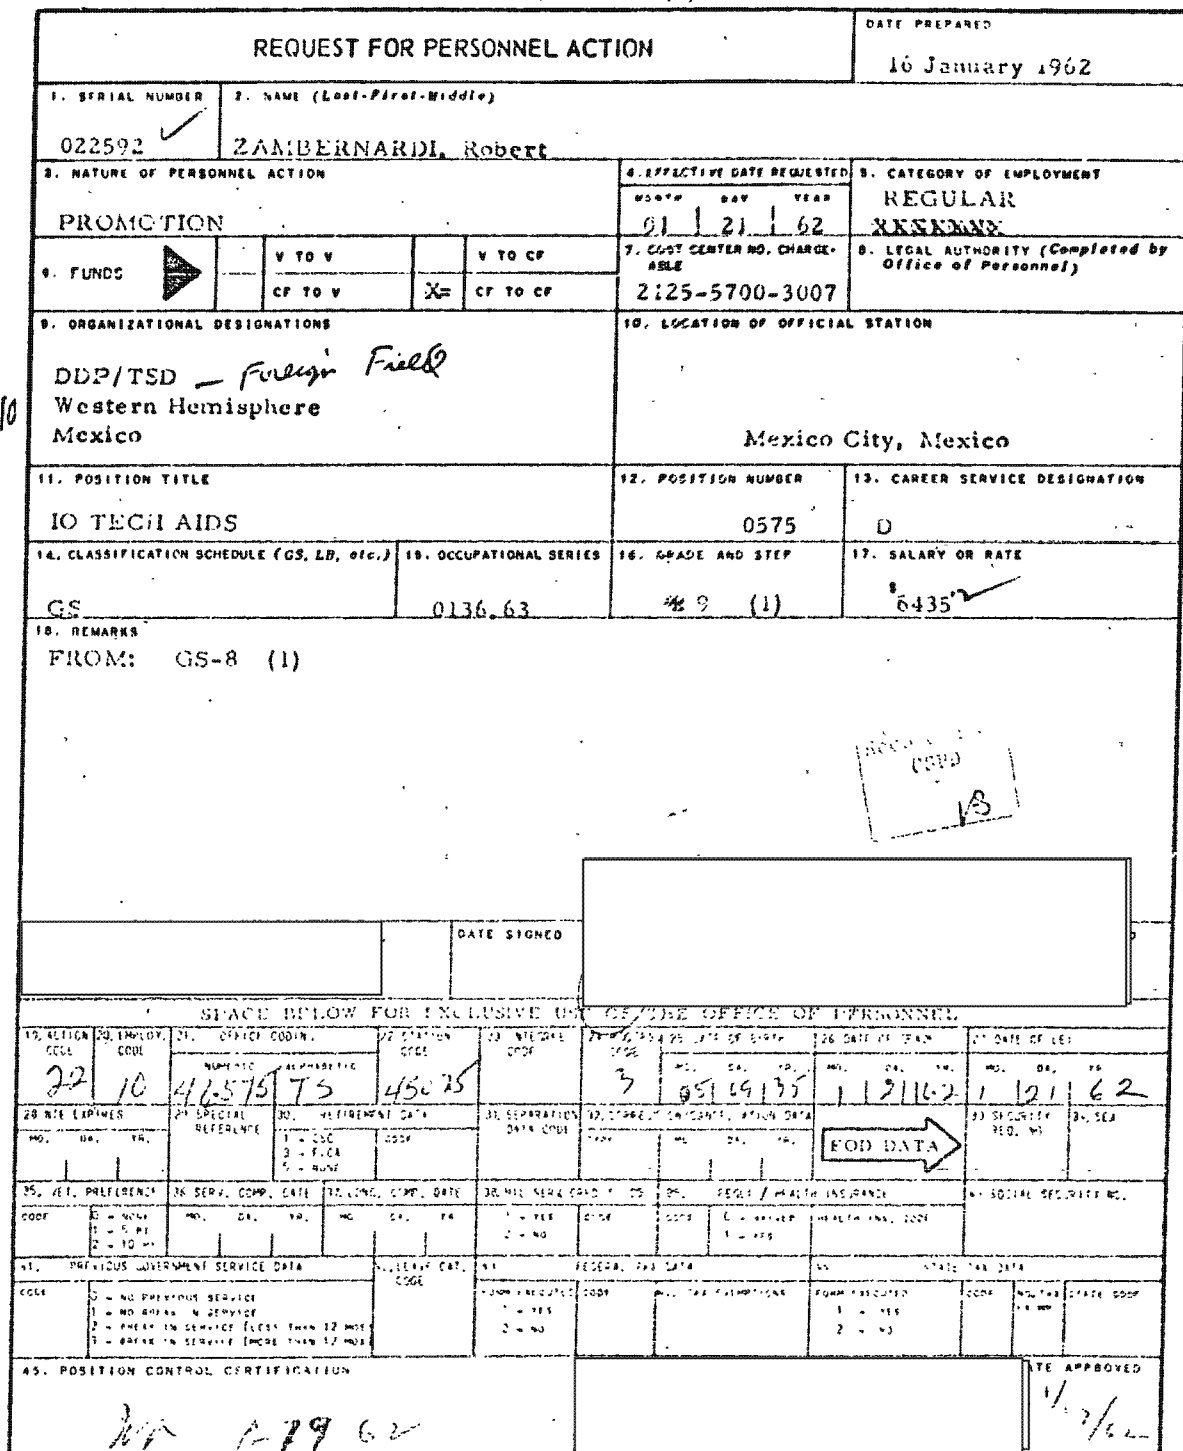 REQUEST FOR PERSONNEL ACTION
DATE PREPARED
16 January 1962
1. SERIAL NUMBER
022592
2. NAME (Last-First-Middle)
ZAMBERNARDI, Robert
3. NATURE OF PERSONNEL ACTION
PROMOTION
4. EFFECTIVE DATE REQUESTED
MONTH DAY YEAR
01 21 62
5. CATEGORY OF EMPLOYMENT
REGULAR
6. FUNDS
V TO V
V TO CF
CF TO V
X= CF TO CF
7. COST CENTER NO. CHARGE-
ABLE
2125-5700-3007
8. LEGAL AUTHORITY (Completed by
Office of Personnel)
9. ORGANIZATIONAL DESIGNATIONS
DDP/TSD — Foreign Field
Western Hemisphere
Mexico
10. LOCATION OF OFFICIAL STATION
Mexico City, Mexico
10
11. POSITION TITLE
IO TECH AIDS
12. POSITION NUMBER
0575
13. CAREER SERVICE DESIGNATION
D
14. CLASSIFICATION SCHEDULE (GS, LB, etc.)
GS
15. OCCUPATIONAL SERIES
0136.63
16. GRADE AND STEP
9 (1)
17. SALARY OR RATE
$6435
18. REMARKS
FROM: GS-8 (1)
CSPD
DATE SIGNED
SPACE BELOW FOR EXCLUSIVE USE OF THE OFFICE OF PERSONNEL
19. ACTION
CODE
22
20. EMPLOY.
CODE
10
21. OFFICE CODING
NUMERIC ALPHABETIC
46575 TS
22. STATION
CODE
45075
23. INTEGREE
CODE
CODE
3
25. DATE OF BIRTH
MO. DA. YR.
26. DATE OF GRADE
MO. DA. YR.
1 21 62
27. DATE OF LEI
MO. DA. YR.
1 21 62
28. NTE EXPIRES
MO. DA. YR.
29. SPECIAL
REFERENCE
30. RETIREMENT DATA
1 - CSC
3 - FICA
5 - NONE
CODE
31. SEPARATION
DATA CODE
32. CORRECTION/CANCELLATION DATA
TYPE
MO. DA. YR.
EOD DATA
33. SECURITY
REQ. NO.
34. SEX
35. VET. PREFERENCE
CODE
0 - NONE
1 - 5 PT
2 - 10 PT
36. SERV. COMP. DATE
MO. DA. YR.
37. LONG. COMP. DATE
MO. DA. YR.
1 - YES
2 - NO
CODE
FEGLI / HEALTH INSURANCE
CODE
0 - WAIVER
1 - YES
HEALTH INS. CODE
40. SOCIAL SECURITY NO.
41. PREVIOUS GOVERNMENT SERVICE DATA
CODE
0 - NO PREVIOUS SERVICE
1 - NO BREAK IN SERVICE
2 - BREAK IN SERVICE (LESS THAN 12 MOS)
3 - BREAK IN SERVICE (MORE THAN 12 MOS)
42. LEAVE CAT.
CODE
43. FEDERAL TAX DATA
FORM EXECUTED
1 - YES
2 - NO
CODE
NO. TAX EXEMPTIONS
44. STATE TAX DATA
FORM EXECUTED
1 - YES
2 - NO
CODE
STATE CODE
45. POSITION CONTROL CERTIFICATION
62
ATE APPROVED